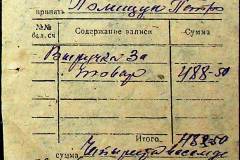 принять Полищук Петро
№№ Содержание записи Сумма
бал. сч
Выручка За
товар 488-50
Итого. 488-50
сумма Четыреста восемде